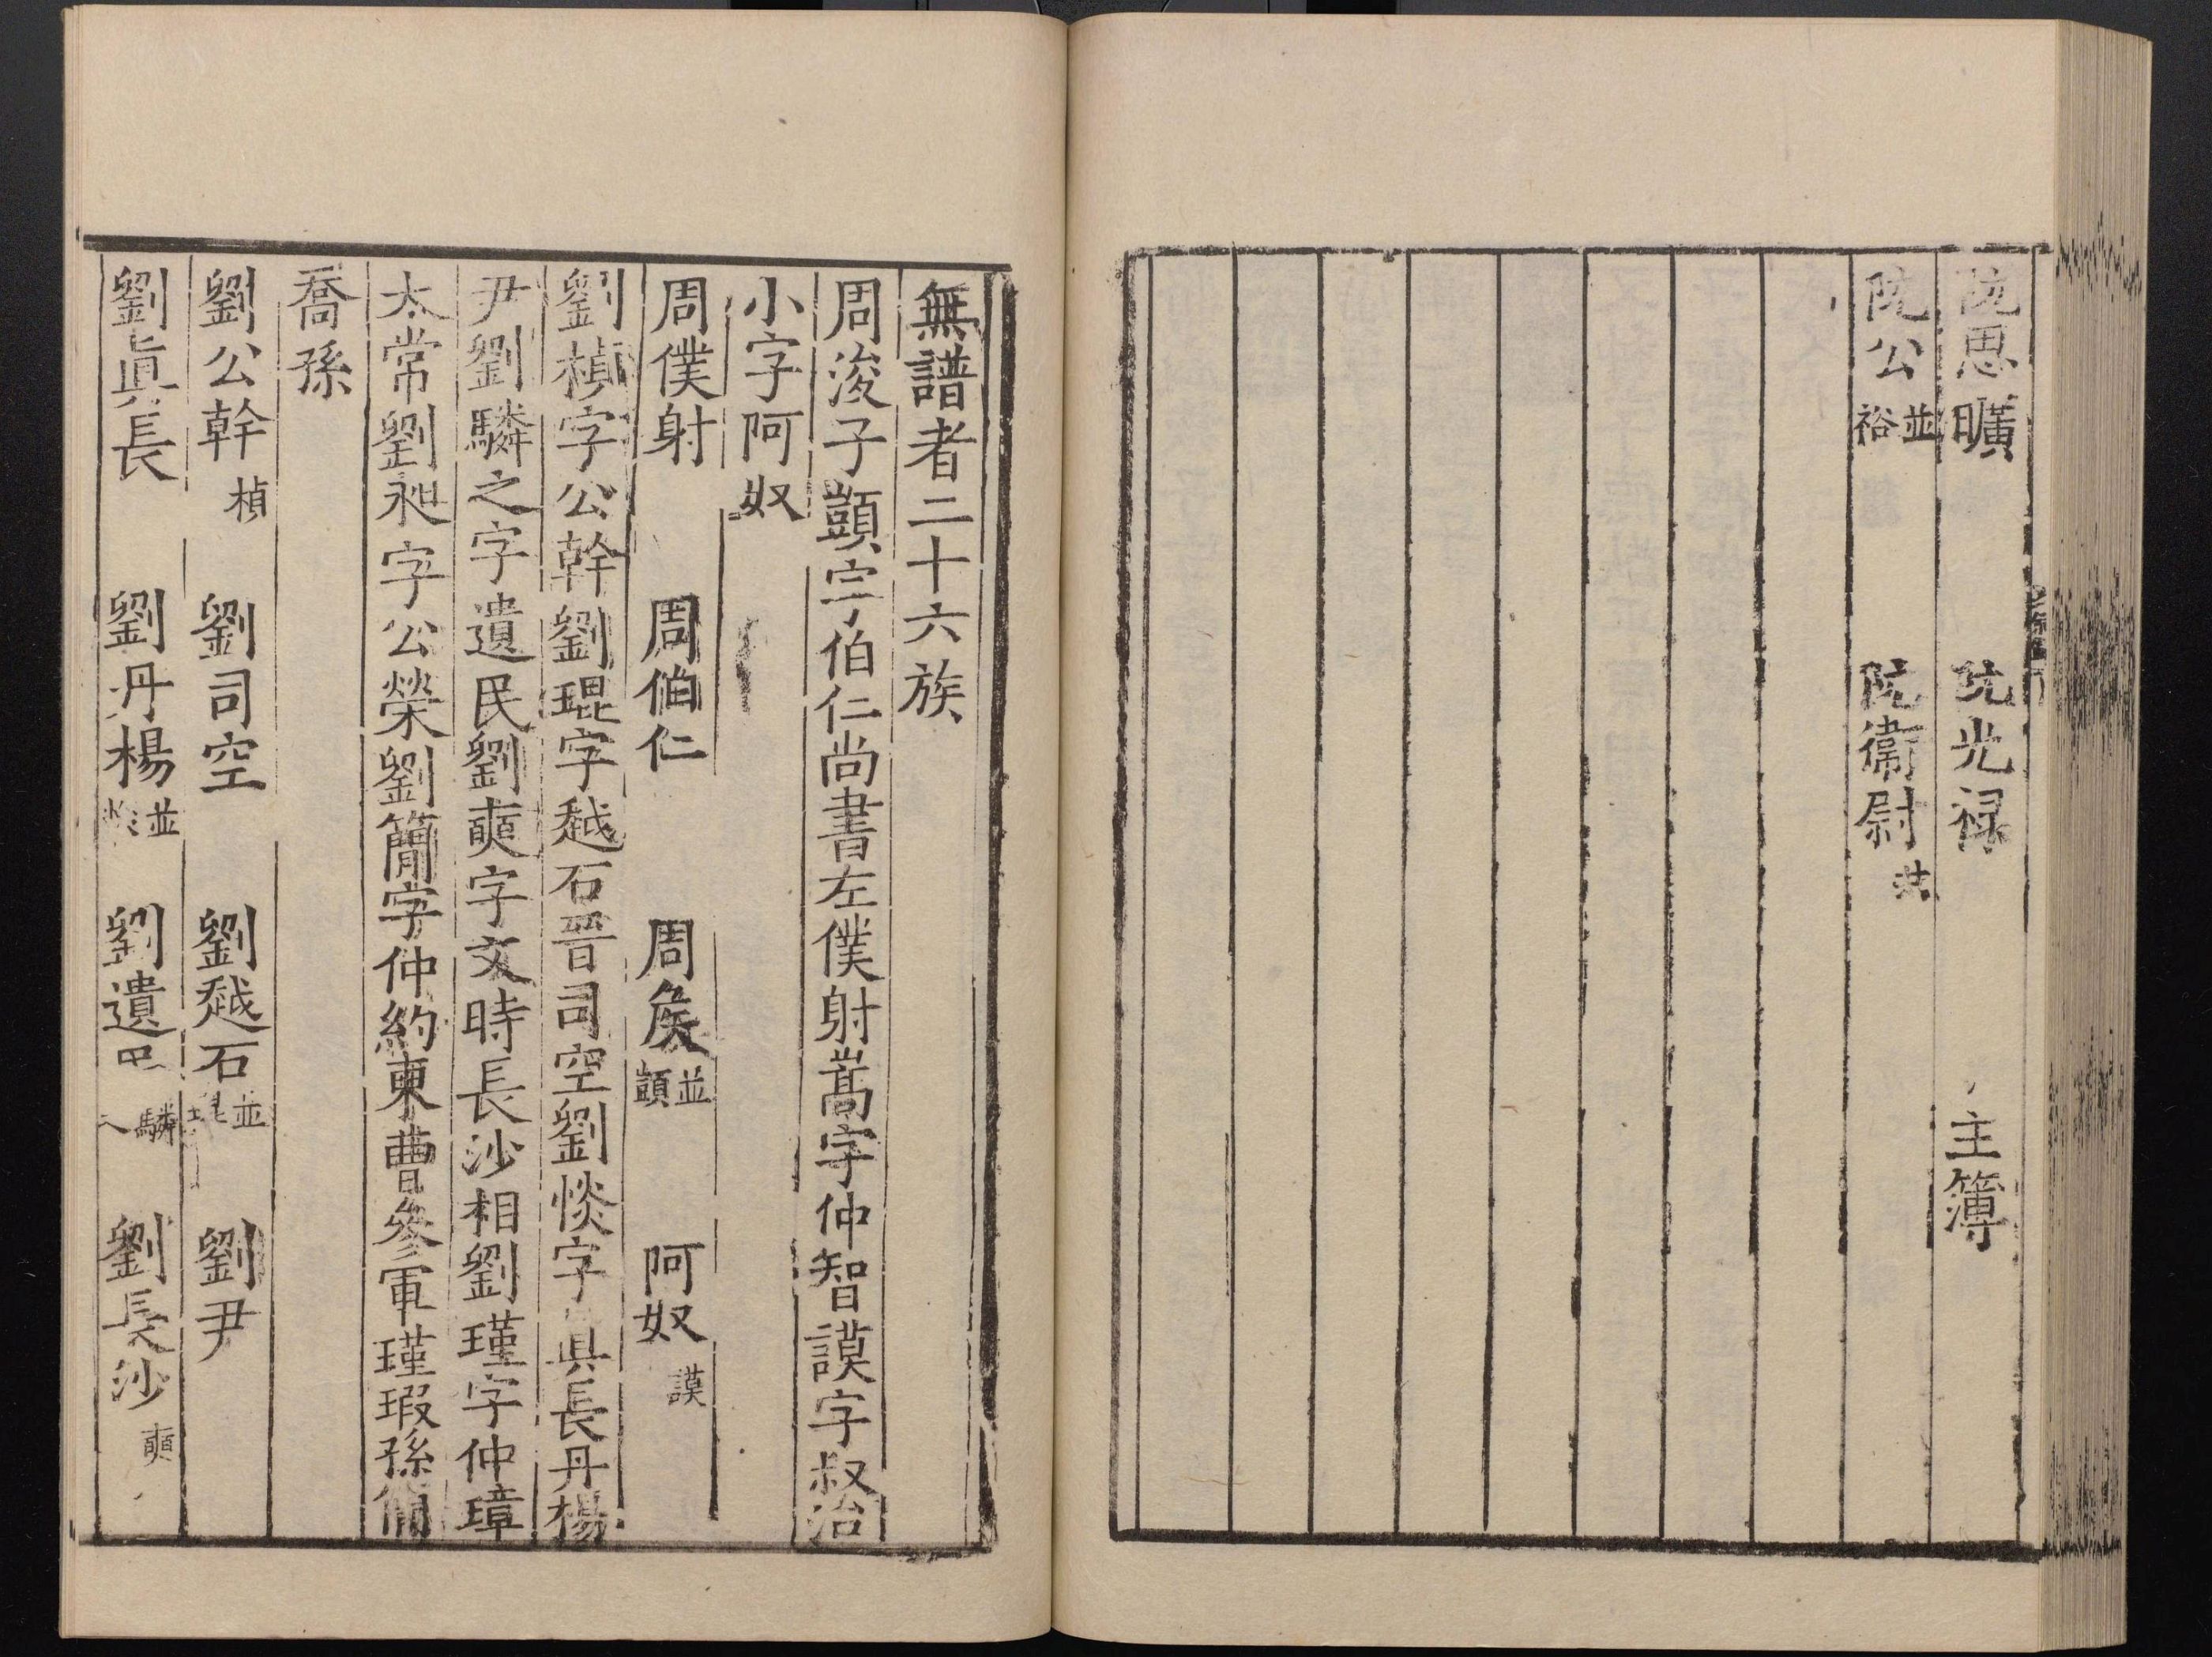 阮思曠 阮光禄 主簿
阮公並裕 阮衞尉
無譜者二十六族
周浚子顗字伯仁尚書左僕射嵩字仲智謨字叔治
小字阿奴
周僕射 周伯仁 周侯並顗 阿奴謨
劉楨字公幹劉琨字越石晉司空劉惔字眞長丹楊
尹劉驎之字遺民劉奭字文時長沙相劉瑾字仲璋
太常劉昶字公榮劉簡字仲約東曹參軍瑾瑕孫簡
喬孫
劉公幹楨 劉司空 劉越石並琨 劉尹
劉眞長 劉丹楊並惔 劉遺驎 劉長沙奭